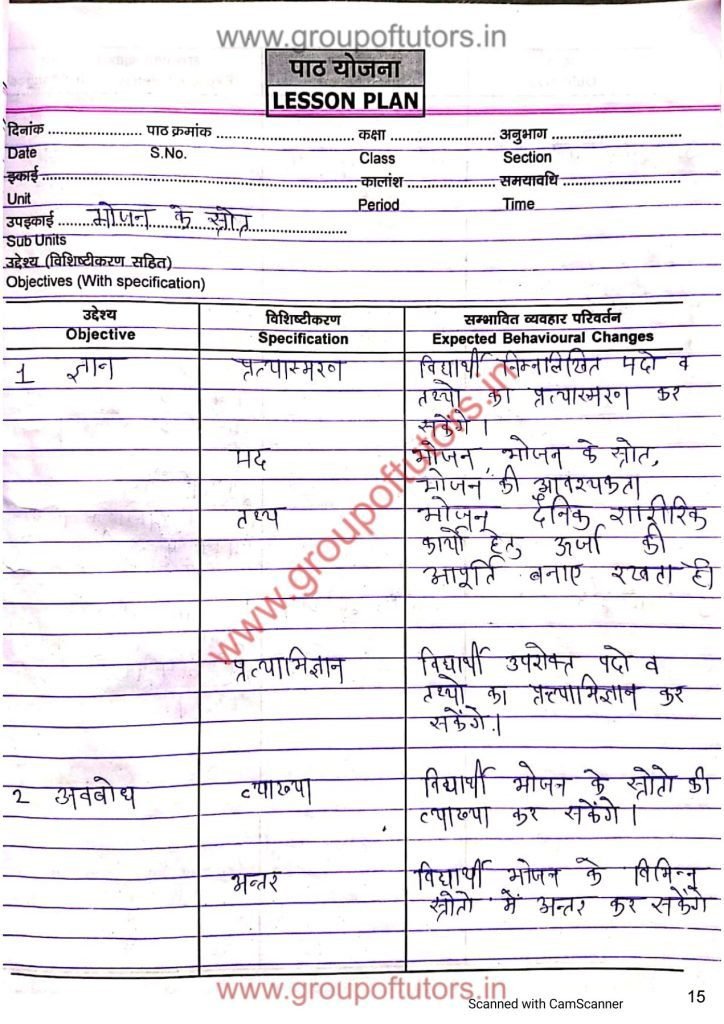 www.groupoftutors.in
पाठ योजना
LESSON PLAN
दिनांक ...................... पाठ क्रमांक ................................ कक्षा ......................... अनुभाग ..............................
Date S.No. Class Section
इकाई ................................................................................ कालांश ...................... समयावधि ...........................
Unit Period Time
उपइकाई ....... भोजन के स्रोत .......................
Sub Units
उद्देश्य (विशिष्टीकरण सहित)
Objectives (With specification)
उद्देश्य विशिष्टीकरण सम्भावित व्यवहार परिवर्तन
Objective Specification Expected Behavioural Changes
1 ज्ञान प्रत्यास्मरण विद्यार्थी निम्नलिखित पदो व
तथ्यो का प्रत्यास्मरण कर
सकेंगे ।
पद भोजन, भोजन के स्रोत,
भोजन की आवश्यकता
तथ्य भोजन दैनिक शारीरिक
कार्यो हेतु ऊर्जा की
आपूर्ति बनाए रखता है।
प्रत्याभिज्ञान विद्यार्थी उपरोक्त पदो व
तथ्यो का प्रत्याभिज्ञान कर
सकेंगे।
2 अवबोध व्याख्या विद्यार्थी भोजन के स्त्रोतो की
व्याख्या कर सकेंगे ।
अन्तर विद्यार्थी भोजन के विभिन्न
स्त्रोतो में अन्तर कर सकेंगे
www.groupoftutors.in
www.groupoftutors.in
Scanned with CamScanner
15